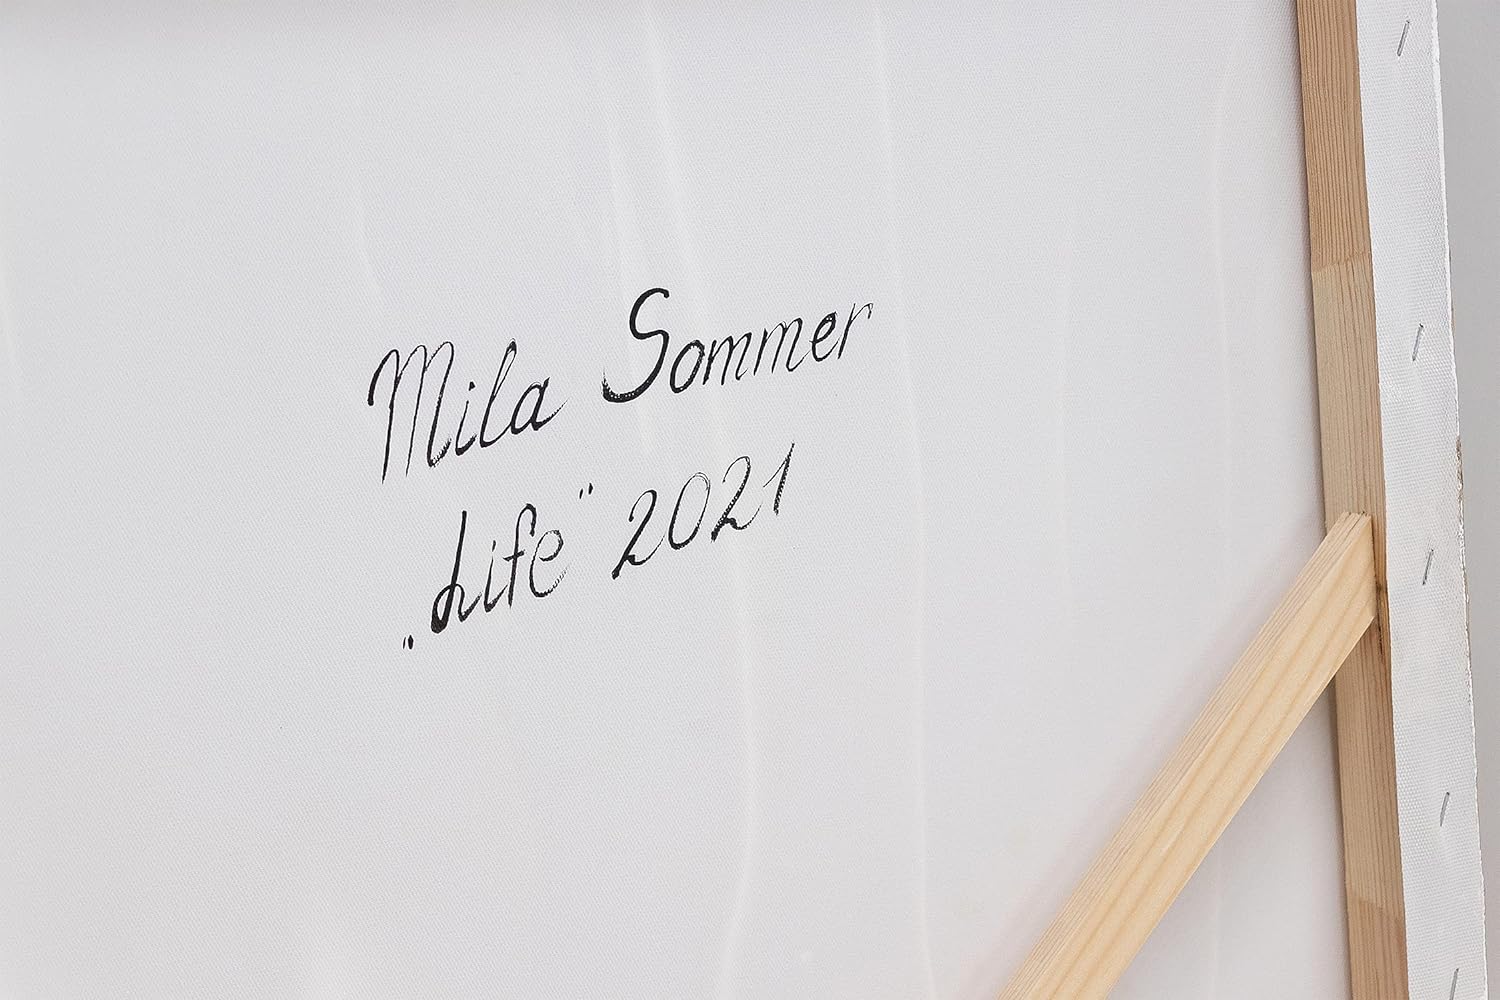 Mila Sommer
„Life“ 2021